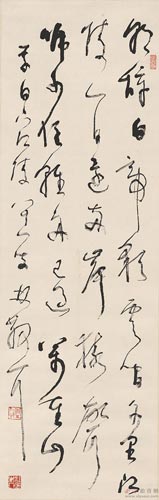 朝辭白帝彩雲間千里江
陵一日還兩岸猿聲
啼不住輕舟已過萬重山
李白 林散耳